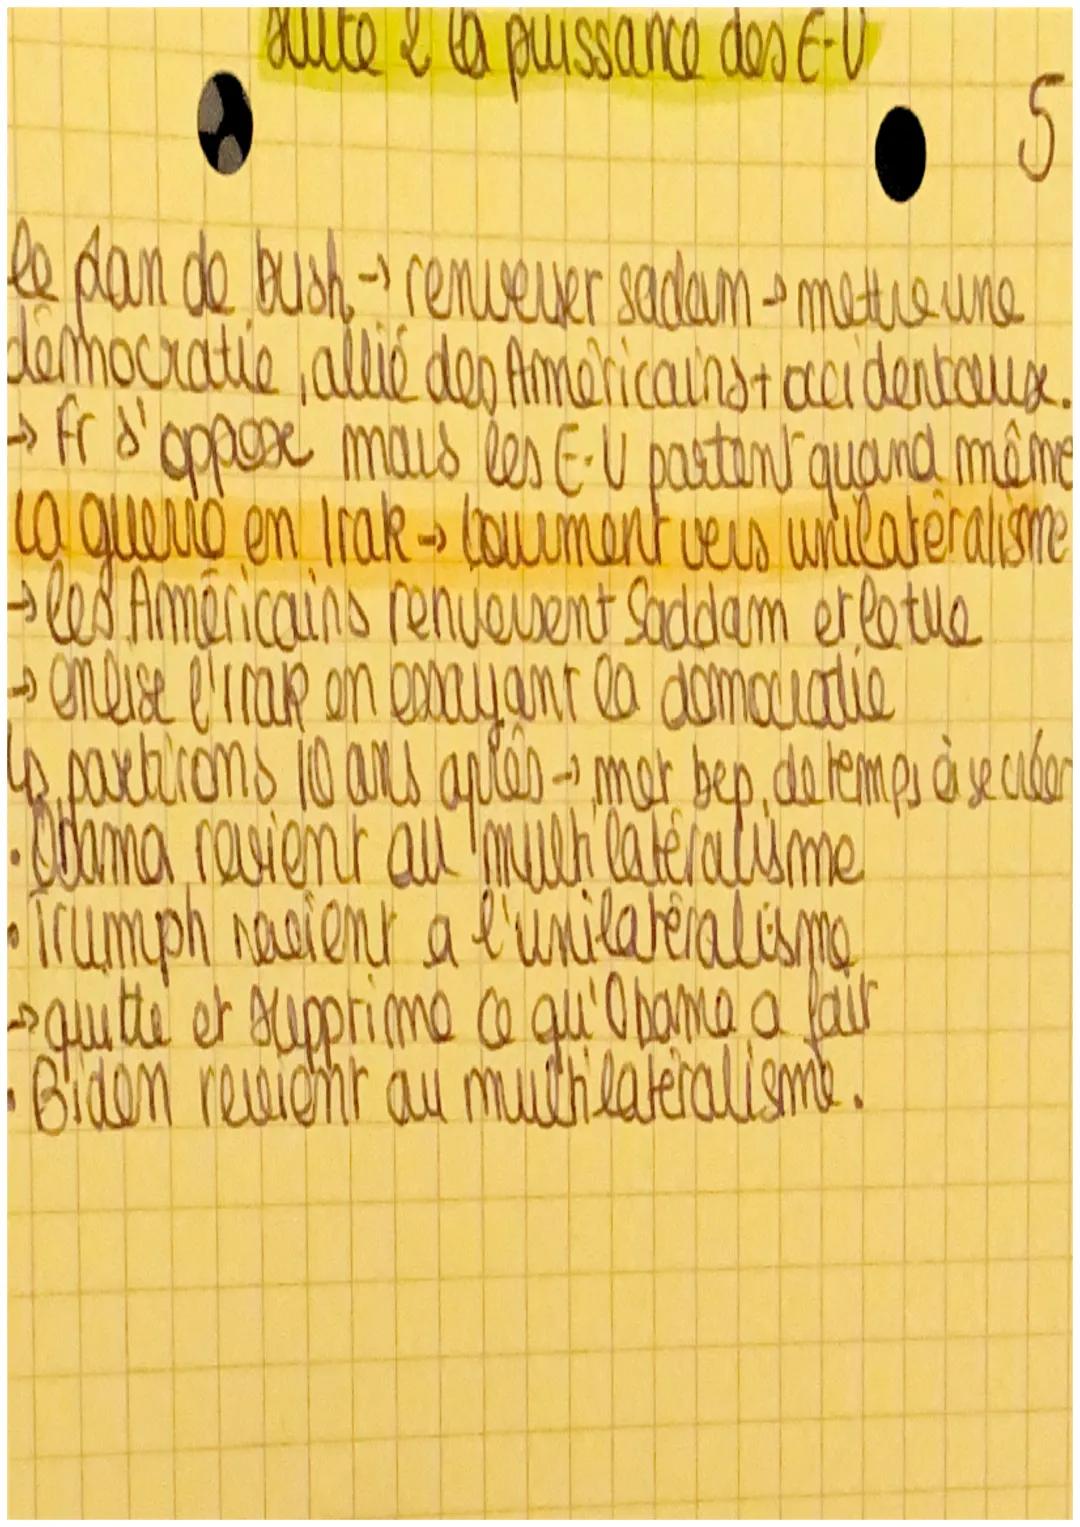 suite 2 la puissance des E-U
5
le plan de bush → renverser sadam → mettre une
démocratie, allié des Américains + occidentaux.
→ Fr s'oppose mais les E-U partent quand même
la guerre en Irak → tourment vers unilatéralisme
→ les Américains renversent Saddam et le tue
→ enlise l'irak en essayant la domocratie
↳ partirons 10 ans après → met bcp, de temps à se créer
• Obama revient au multilatéralisme
• Trumph revient a l'unilatéralisme
→ quitte et supprime ce qu'Obama a fait
• Biden revient au multilatéralisme.